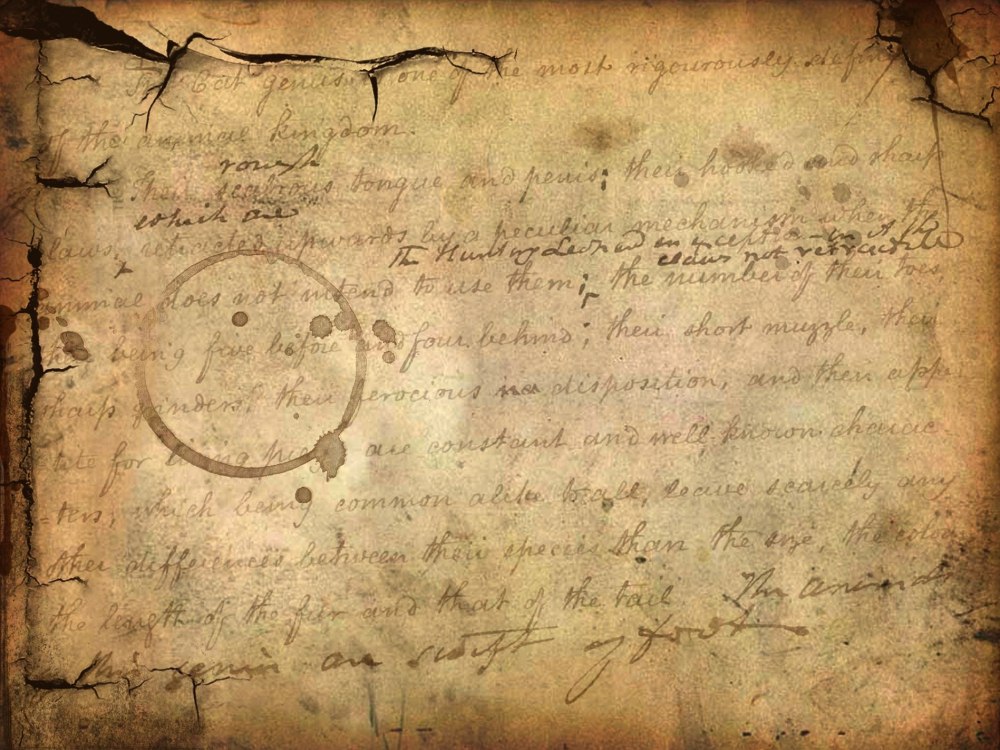 The Cat genus is one of the most rigourously defin
of the animal kingdom.
rough
Their scabrous tongue and penis; their hooked and sharp
which are
claws, retracted upwards by a peculiar mechanism when the
The Hunting Leopard an exception in it the
claws not retractile
animal does not intend to use them; the number of their toes,
being five before and four behind; their short muzzle, their
sharp grinders, their ferocious disposition, and their appe
tite for living are constant and well known charac
-ters, which being common alike to all, leave scarcely any
other differences between their species than the size, the colour
the length of the fur and that of the tail The animals
this genus are swift of foot